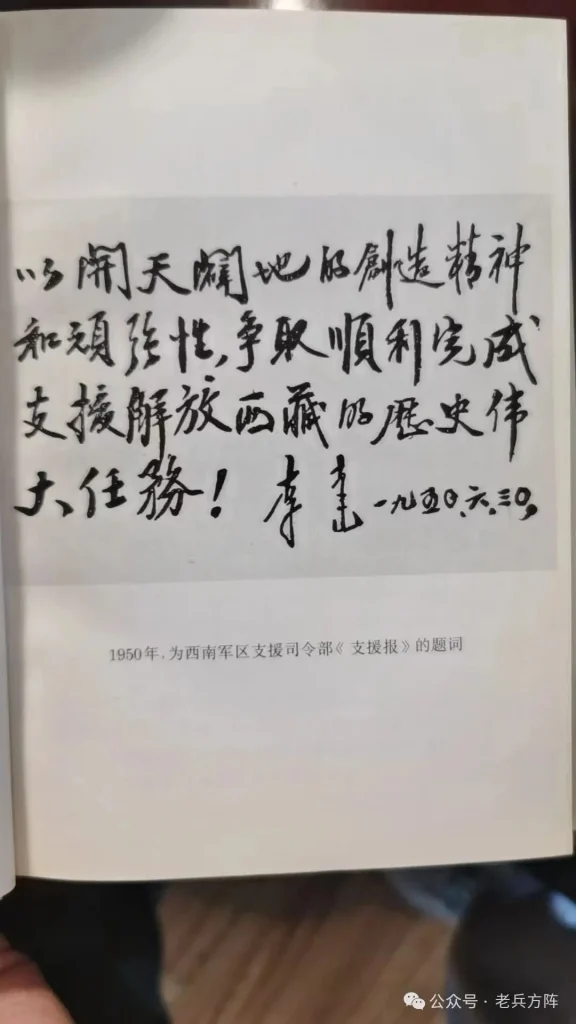 以開天闢地的創造精神
和頑強性,争取順利完成
支援解放西藏的歷史伟
大任務! 李達 一九五〇、六、三〇,
1950年,为西南军区支援司令部《支援报》的题词
公众号·老兵方阵